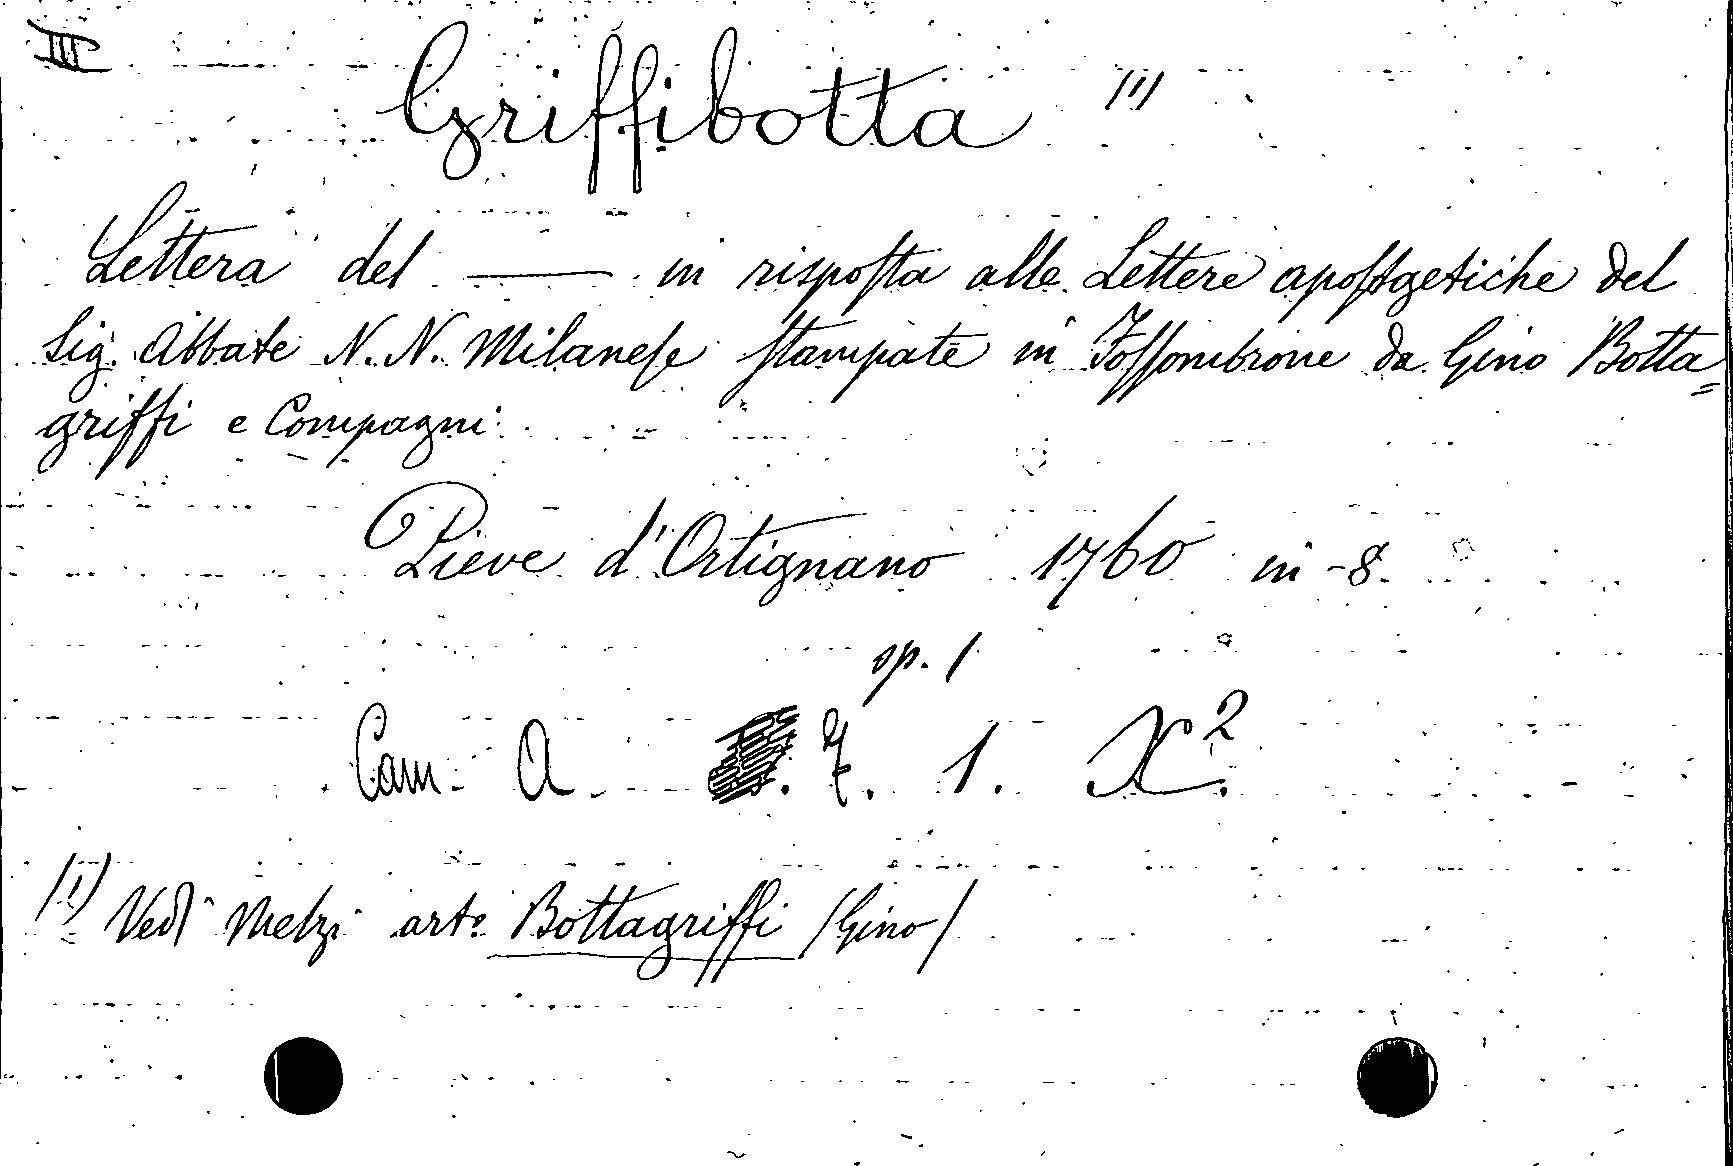 III
Griffibotta (1)
Lettera del —— in risposta alle Lettere apologetiche del
Sig. Abbate N. N. Milanese stampate in Fossombrone da Gino Botta=
griffi e Compagni
Pieve d'Ortignano 1760 in-8.
op. 1
Cam. A. Z. 1. X2.
(1) Vedi Melzi arto. Bottagriffi (Gino)